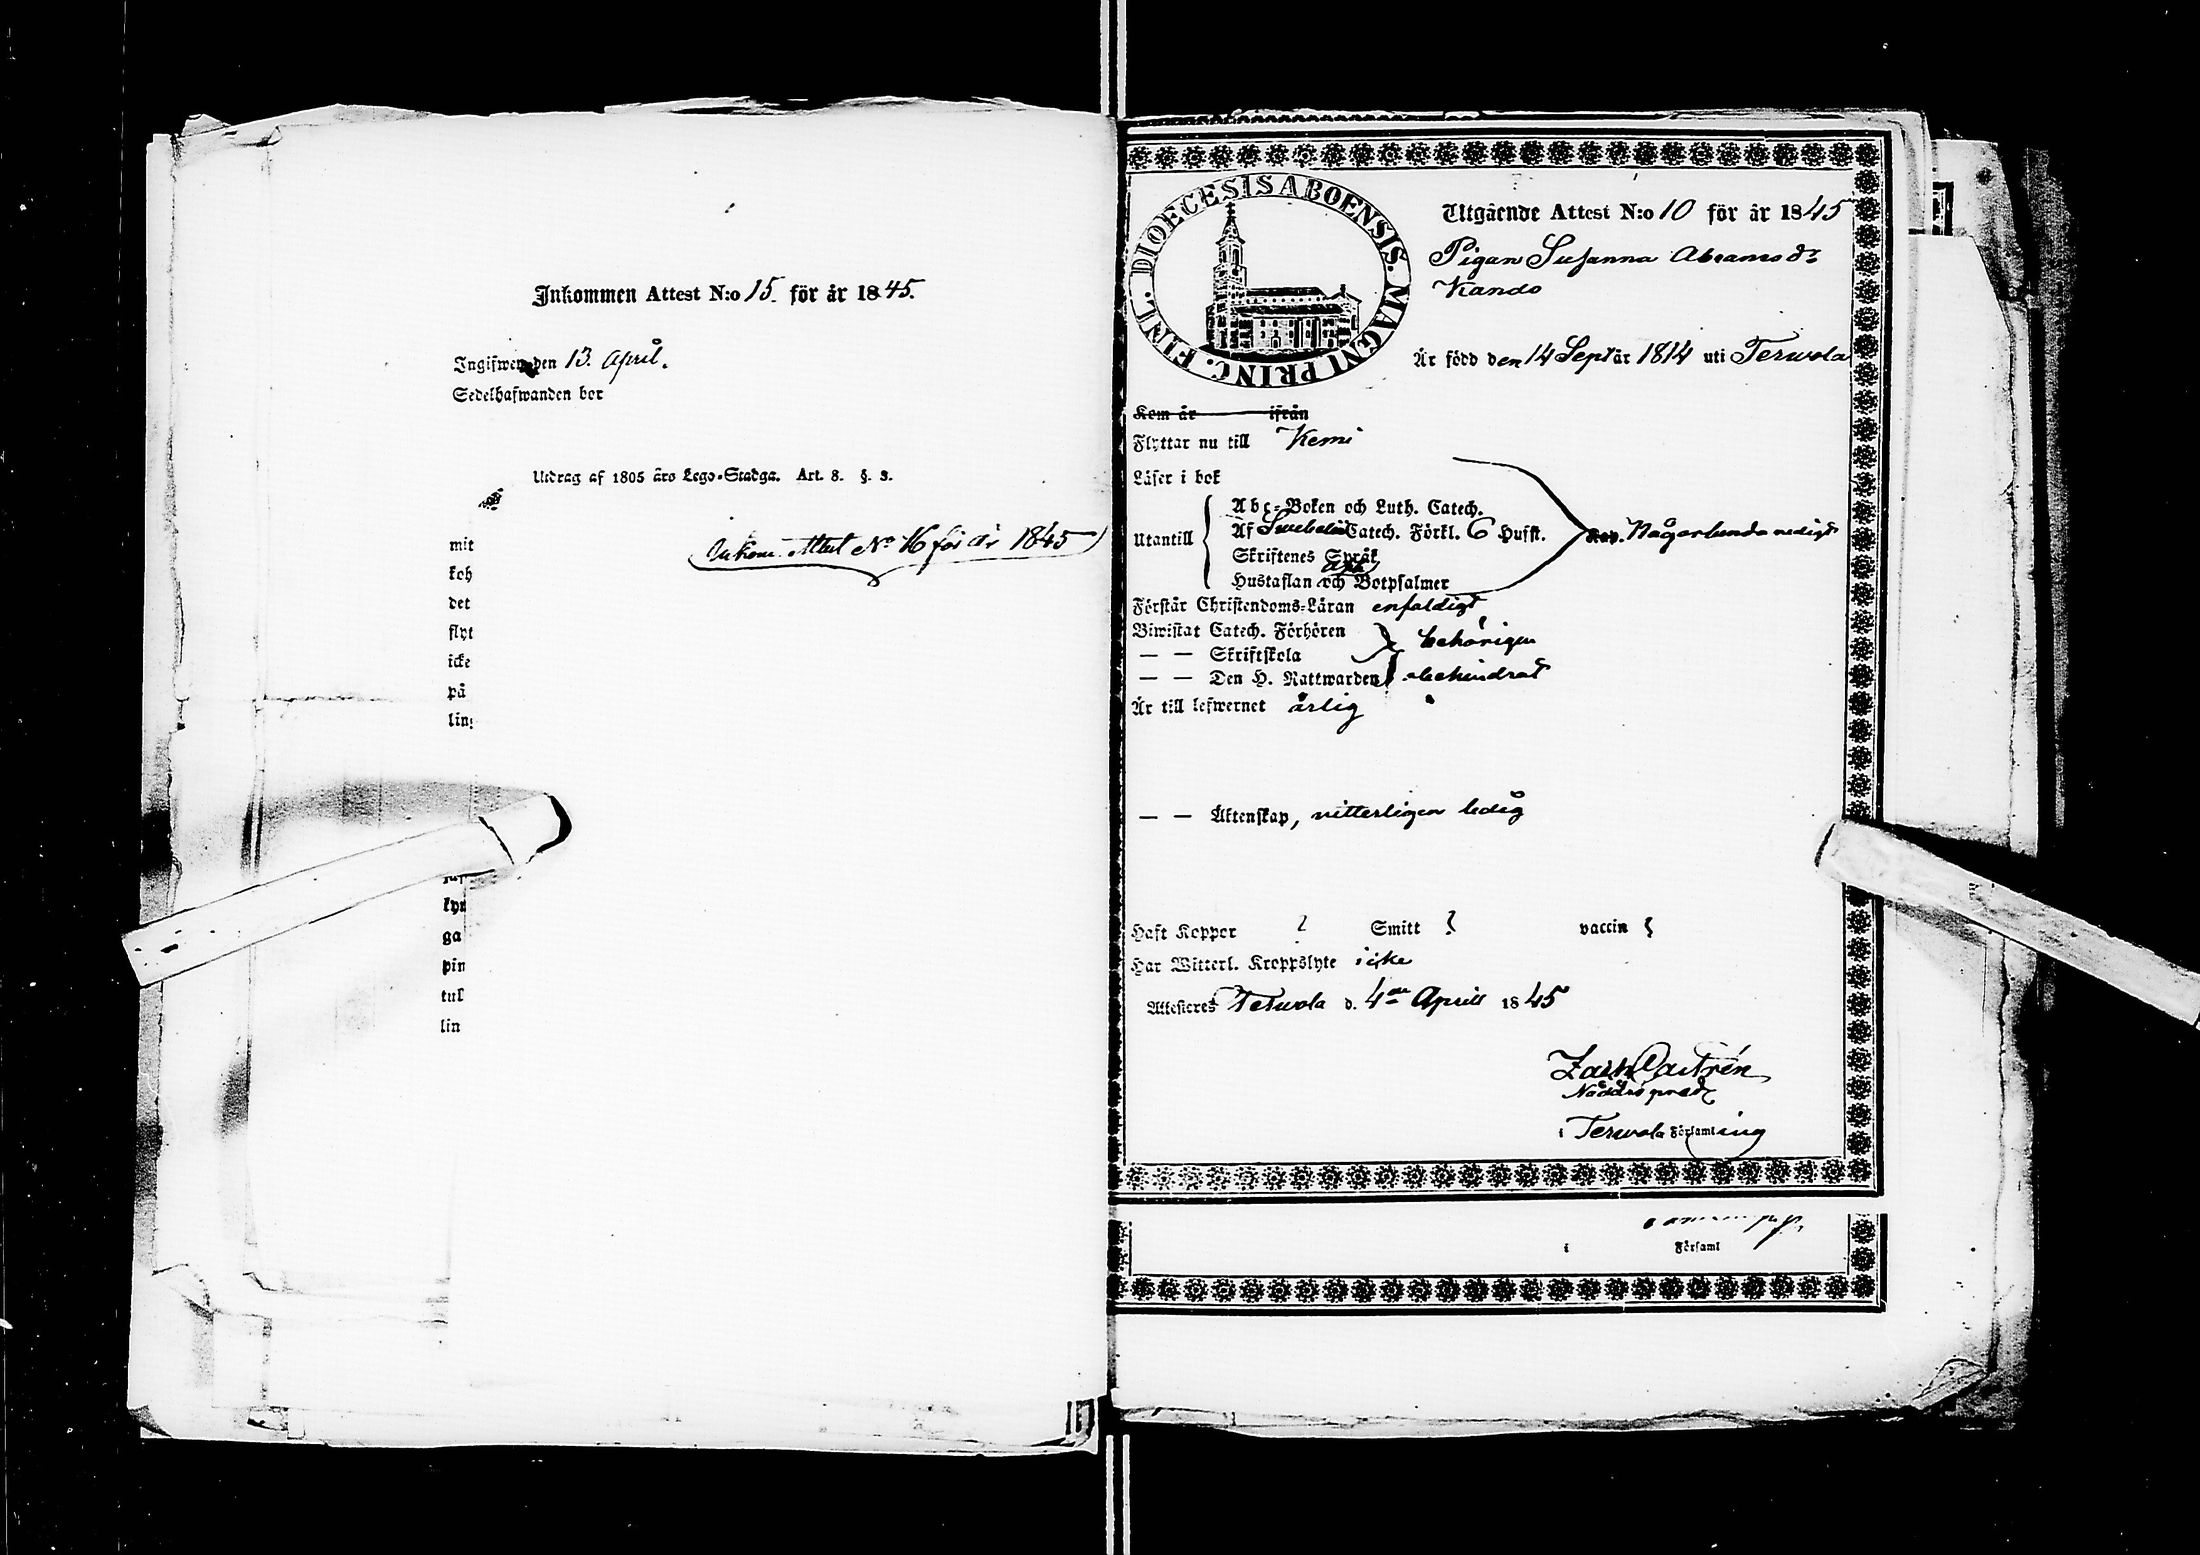 Inkommen Attest N:o 15. för år 1845.
Ingifwen den 13. April.
Sedelhafwanden bor
Utdrag af 1805 års Lego-Stadga. Art. 8. §. 3.
Inkom. Attest No 16 för år 1845
mit
keh
det
flyt
icke
på
ling
kyr
ga
pin
tul
lin
DIOECESIS ABOENSIS. MAGNI PRINC. FINL.
Utgående Attest N:o 10 för år 1845
Pigan Susanna Abramsdr
Kando
Är född den 14 Sept år 1814 uti Terwola
Kom år ifrån
Flyttar nu till Kemi
Läser i bok
Utantill
Abc-Boken och Luth. Catech.
Af Swebelii Catech. Förkl. 6 Hufst.
Någorlunda nödigt
Skriftenes Språk
Hustaflan och Botpsalmer
Förstår Christendoms-Läran enfaldigt
Biwistat Catech. Förhören behörigen
— — Skriftskola
— — Den H. Nattwarden obehindrat
Är till lefwernet ärlig
— — Äktenskap, witterligen ledig
Haft Koppor Smitt vaccin
Har Witterl. Kroppslyte icke
Attesteres Terwola d. 4de April 1845
Zach Castrén
Nådårspred
i Terwola Församling
i Församl